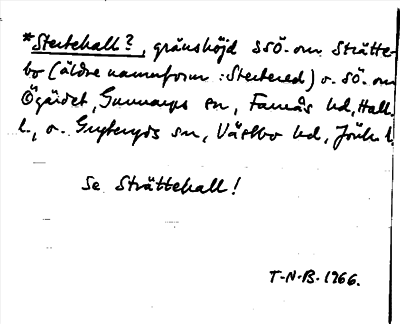 *Stertehall?, gränshöjd SSÖ. om Strätte-
bo (äldre namnform: Stertered) o. SÖ. om
Ögärdet, Gunnarps sn, Faurås hd, Hall.
l., o. Gryteryds sn, Västbo hd, Jönk. l.
Se Strättehall!
T-N-B. 1966.